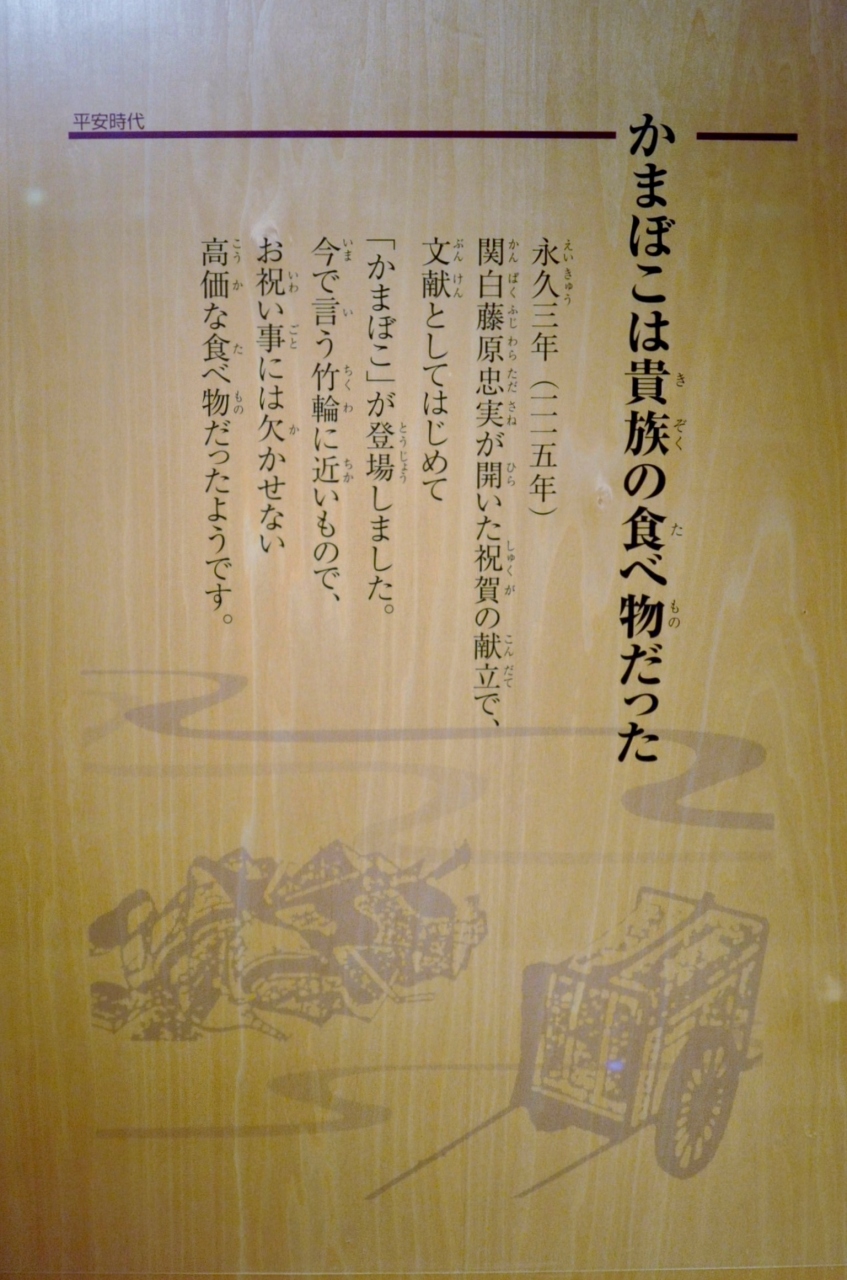 平安時代
かまぼこは貴族の食べ物だった
永久三年（一一一五年）
関白藤原忠実が開いた祝賀の献立で、
文献としてはじめて
「かまぼこ」が登場しました。
今で言う竹輪に近いもので、
お祝い事には欠かせない
高価な食べ物だったようです。